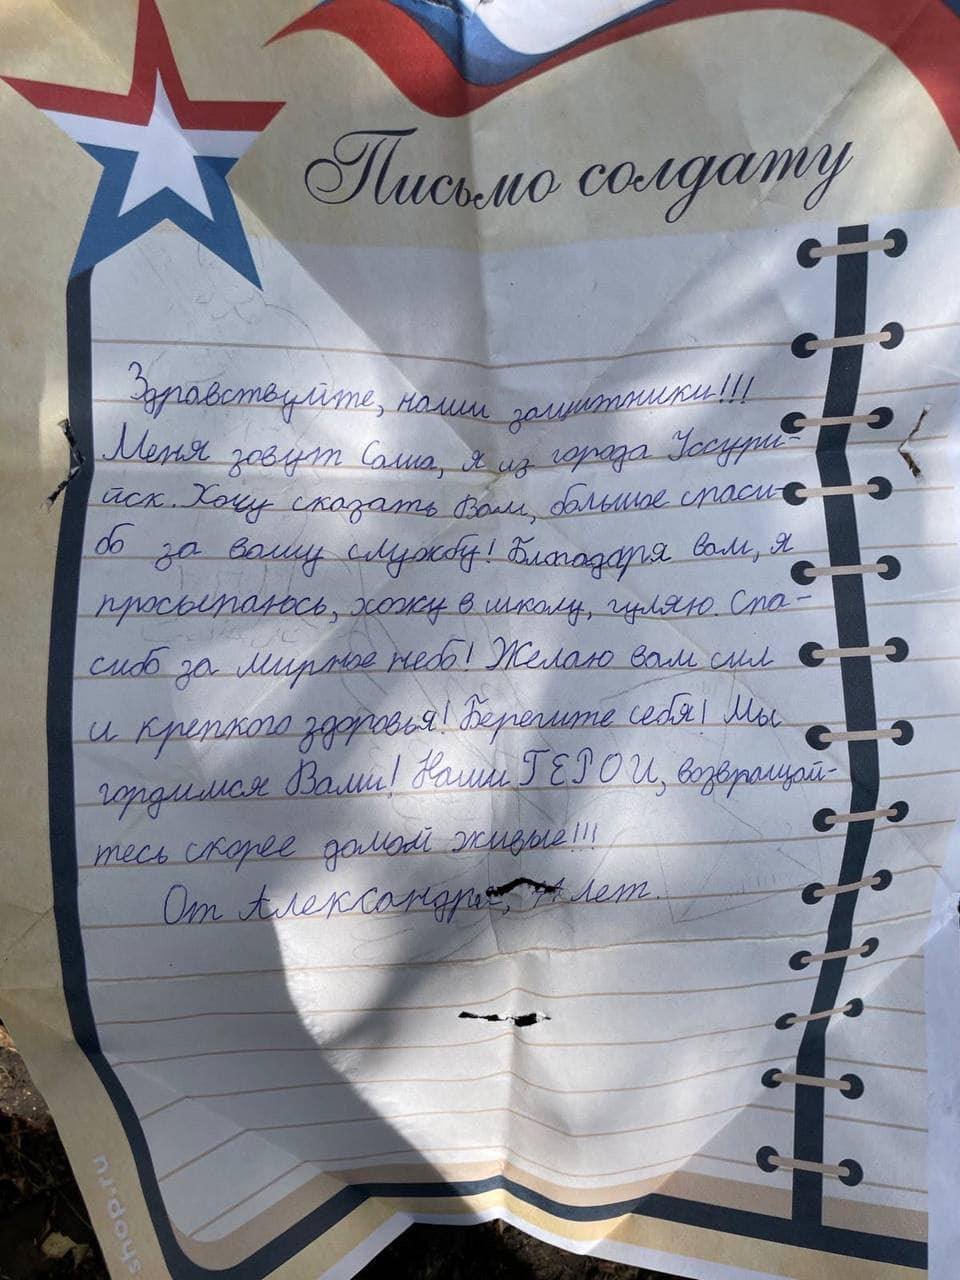 Письмо солдату
Здравствуйте, наши защитники!!!
Меня зовут Саша, я из города Уссури-
йск. Хочу сказать Вам, большое спаси-
бо за вашу службу! Благодаря вам, я
просыпаюсь, хожу в школу, гуляю. Спа-
сибо за мирное небо! Желаю вам сил
и крепкого здоровья! Берегите себя! Мы
гордимся Вами! Наши ГЕРОИ, возвращай-
тесь скорее домой живые!!!
От Александра, лет.
shop.ru